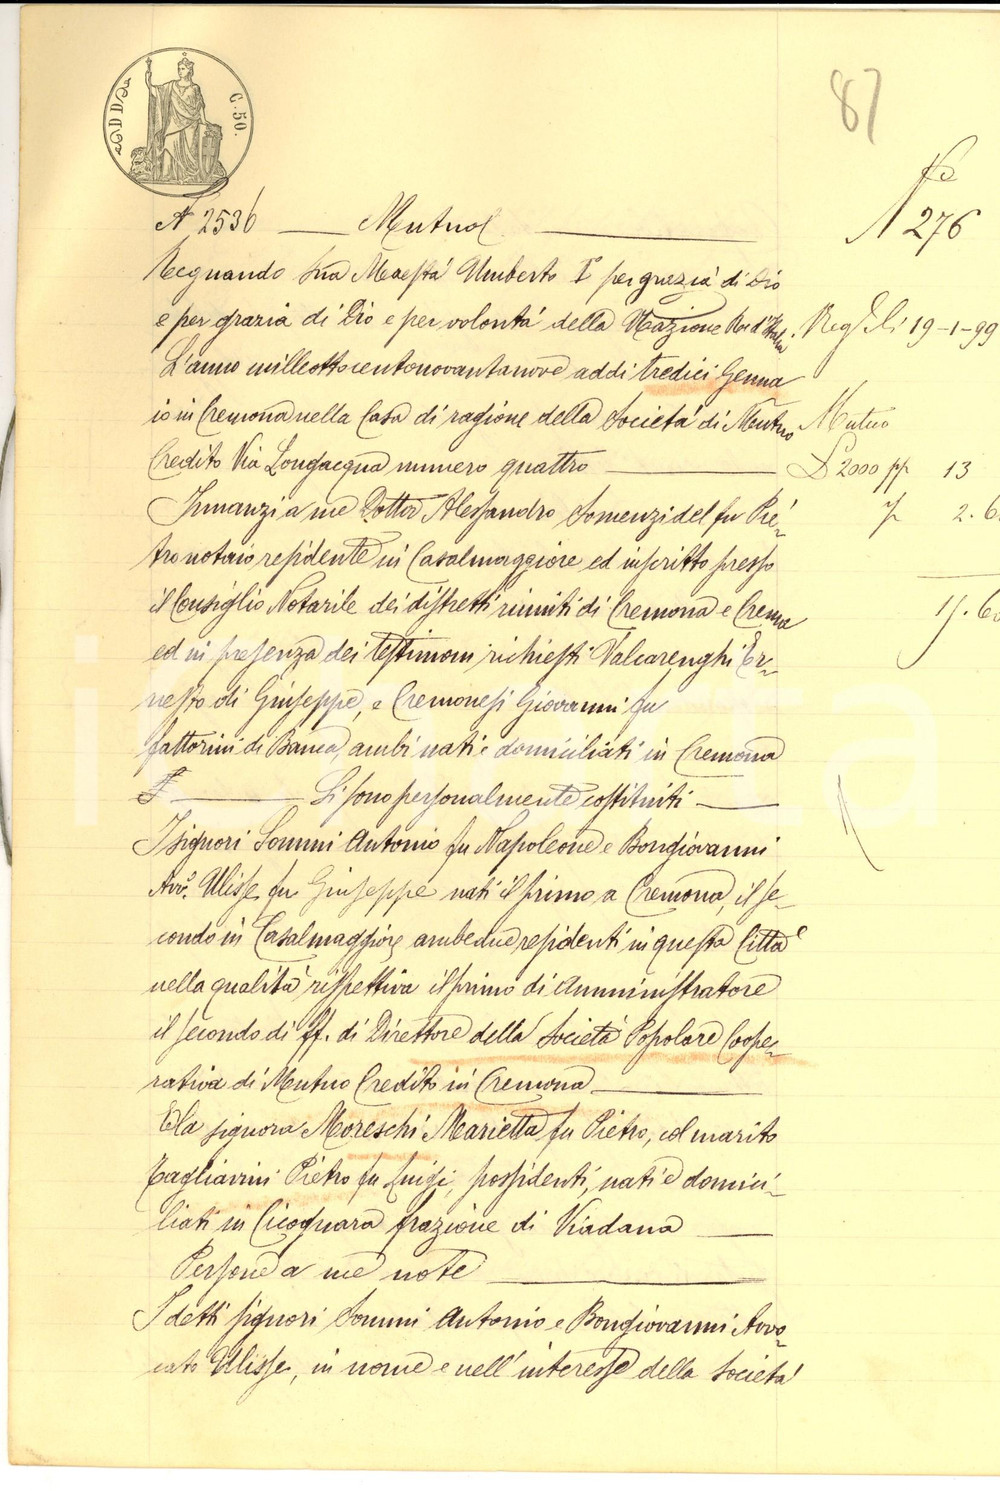 87
C. 50.
N 2536 Mutuo
N° 276
Regnando Sua Maestà Umberto I° per grazia di Dio
e per grazia di Dio e per volontà della Nazione Re d'Italia.
Reg 19-1-99
L'anno milleottocentonovantanove addi tredici Genna
io in Cremona nella Casa di ragione della Società di Mutuo
Mutuo
Credito Via Longacqua numero quattro
£ 2000 pp 13
2.60
15.60
Innanzi a me Dottor Alessandro Somenzi del fu Pie-
tro notaio residente in Casalmaggiore ed inscritto presso
il Consiglio Notarile dei distretti riuniti di Cremona e Crema
ed in presenza dei testimoni richiesti Valcarenghi Er-
nesto di Giuseppe, e Cremonesi Giovanni fu
fattorini di Banca, ambi nati e domiciliati in Cremona
Si sono personalmente costituiti
I signori Sommi Antonio fu Napoleone e Bongiovanni
Avv°. Ulisse fu Giuseppe nati il primo a Cremona, il se-
condo in Casalmaggiore ambedue residenti in questa Città
nella qualità rispettiva il primo di Amministratore
il secondo di ff. di Direttore della Società Popolare Coope-
rativa di Mutuo Credito in Cremona
E la signora Moreschi Marietta fu Pietro, col marito
Tagliavini Pietro fu Luigi, possidenti, nati e domici-
liati in Cicognara frazione di Viadana
Persone a me note
I detti signori Sommi Antonio e Bongiovanni Avvo-
cato Ulisse, in nome e nell'interesse della Società